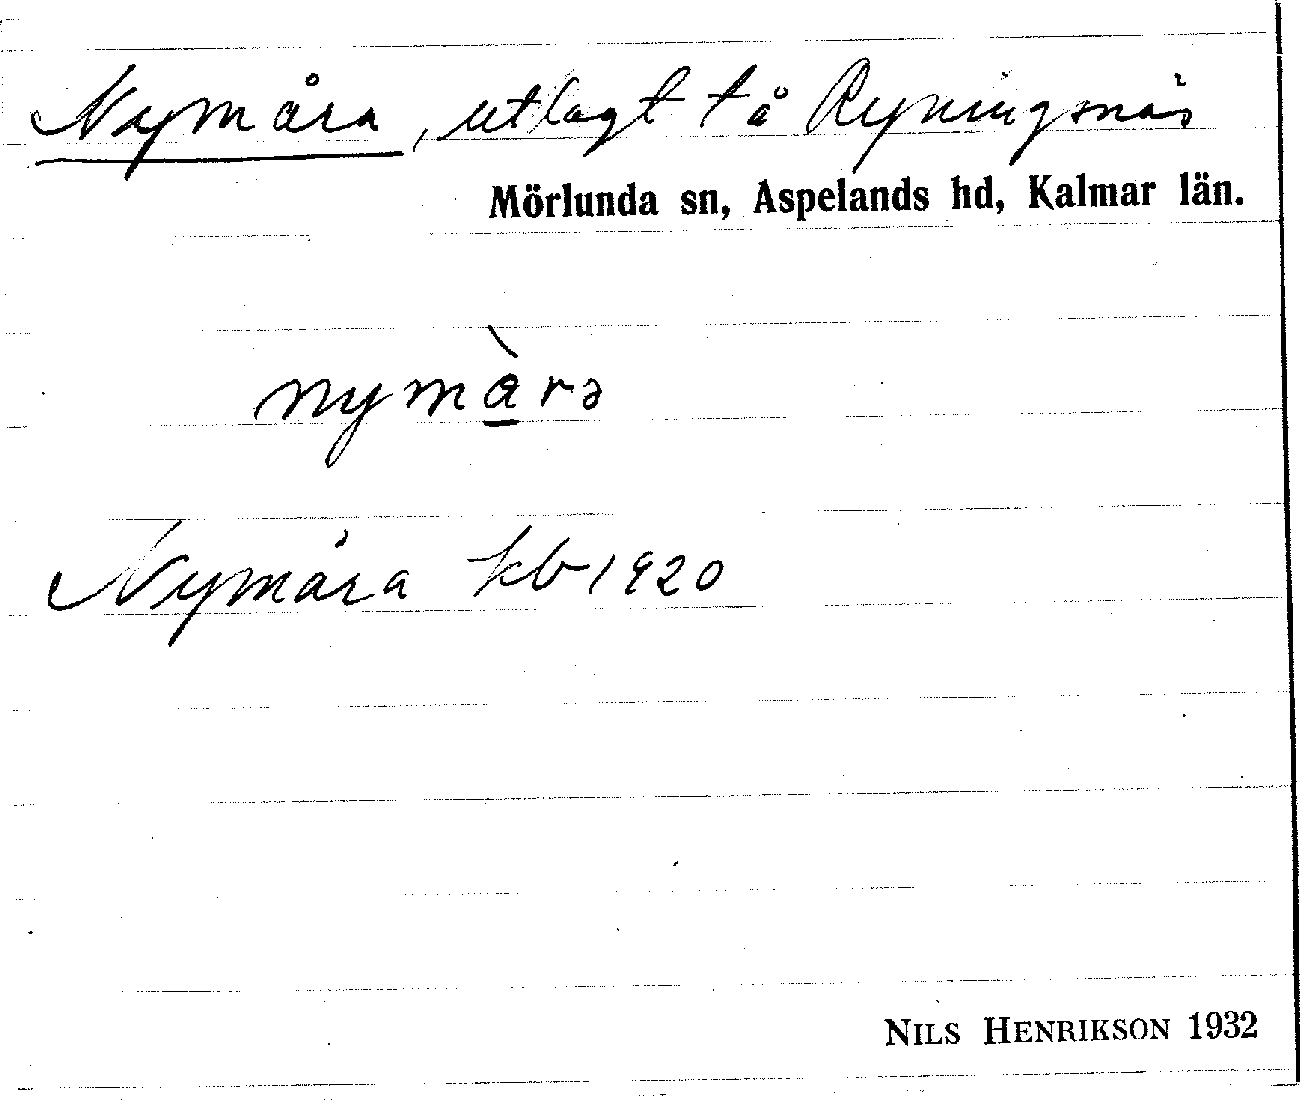 Nymåra, utlagt tå Ryningsnäs
Mörlunda sn, Aspelands hd, Kalmar län.
nymàrə
Nymåra kb 1920
NILS HENRIKSON 1932